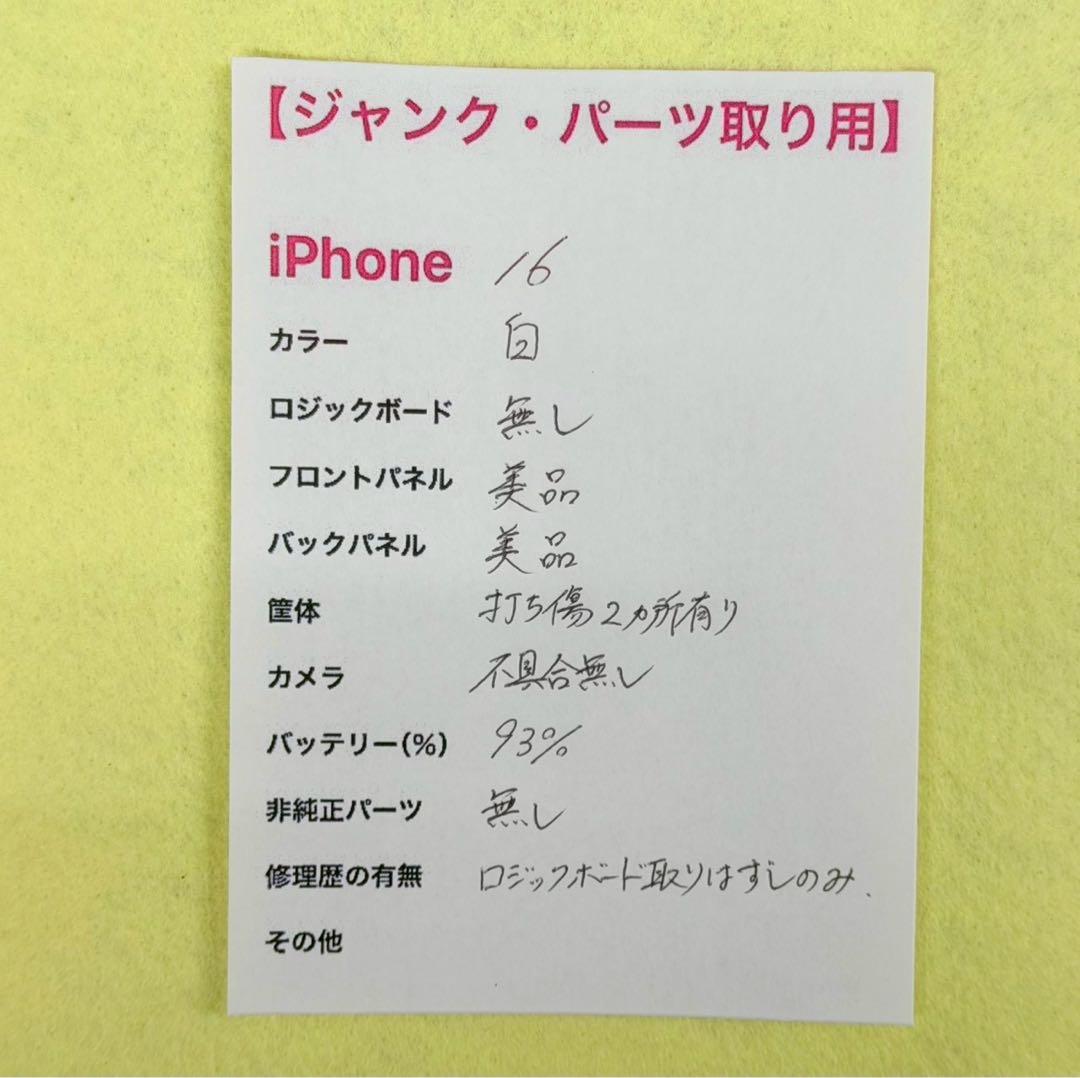 【ジャンク・パーツ取り用】
iPhone 16
カラー 白
ロジックボード 無し
フロントパネル 美品
バックパネル 美品
筐体 打ち傷2カ所有り
カメラ 不具合無し
バッテリー(%) 93%
非純正パーツ 無し
修理歴の有無 ロジックボード取りはずしのみ、
その他